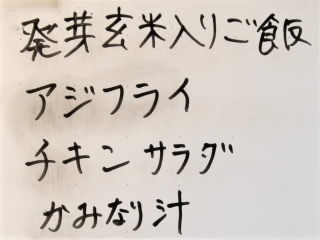 発芽玄米入りご飯
アジフライ
チキンサラダ
かみなり汁